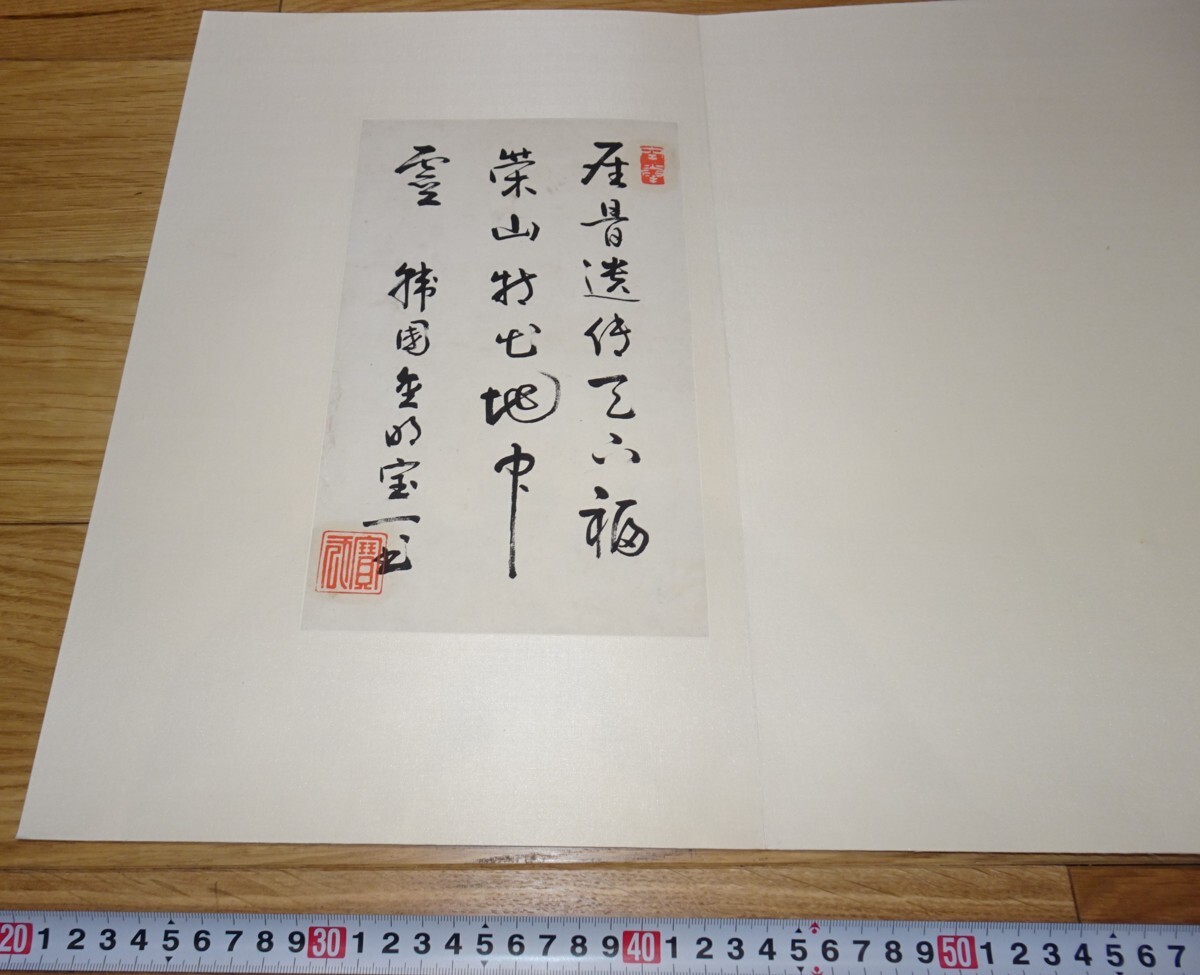 遺傳天下福
榮山特出地中
靈 韓国金明宝
20 1 2 3 4 5 6 7 8 9 30 1 2 3 4 5 6 7 8 9 40 1 2 3 4 5 6 7 8 9 50 1 2 3 4 5 6 7